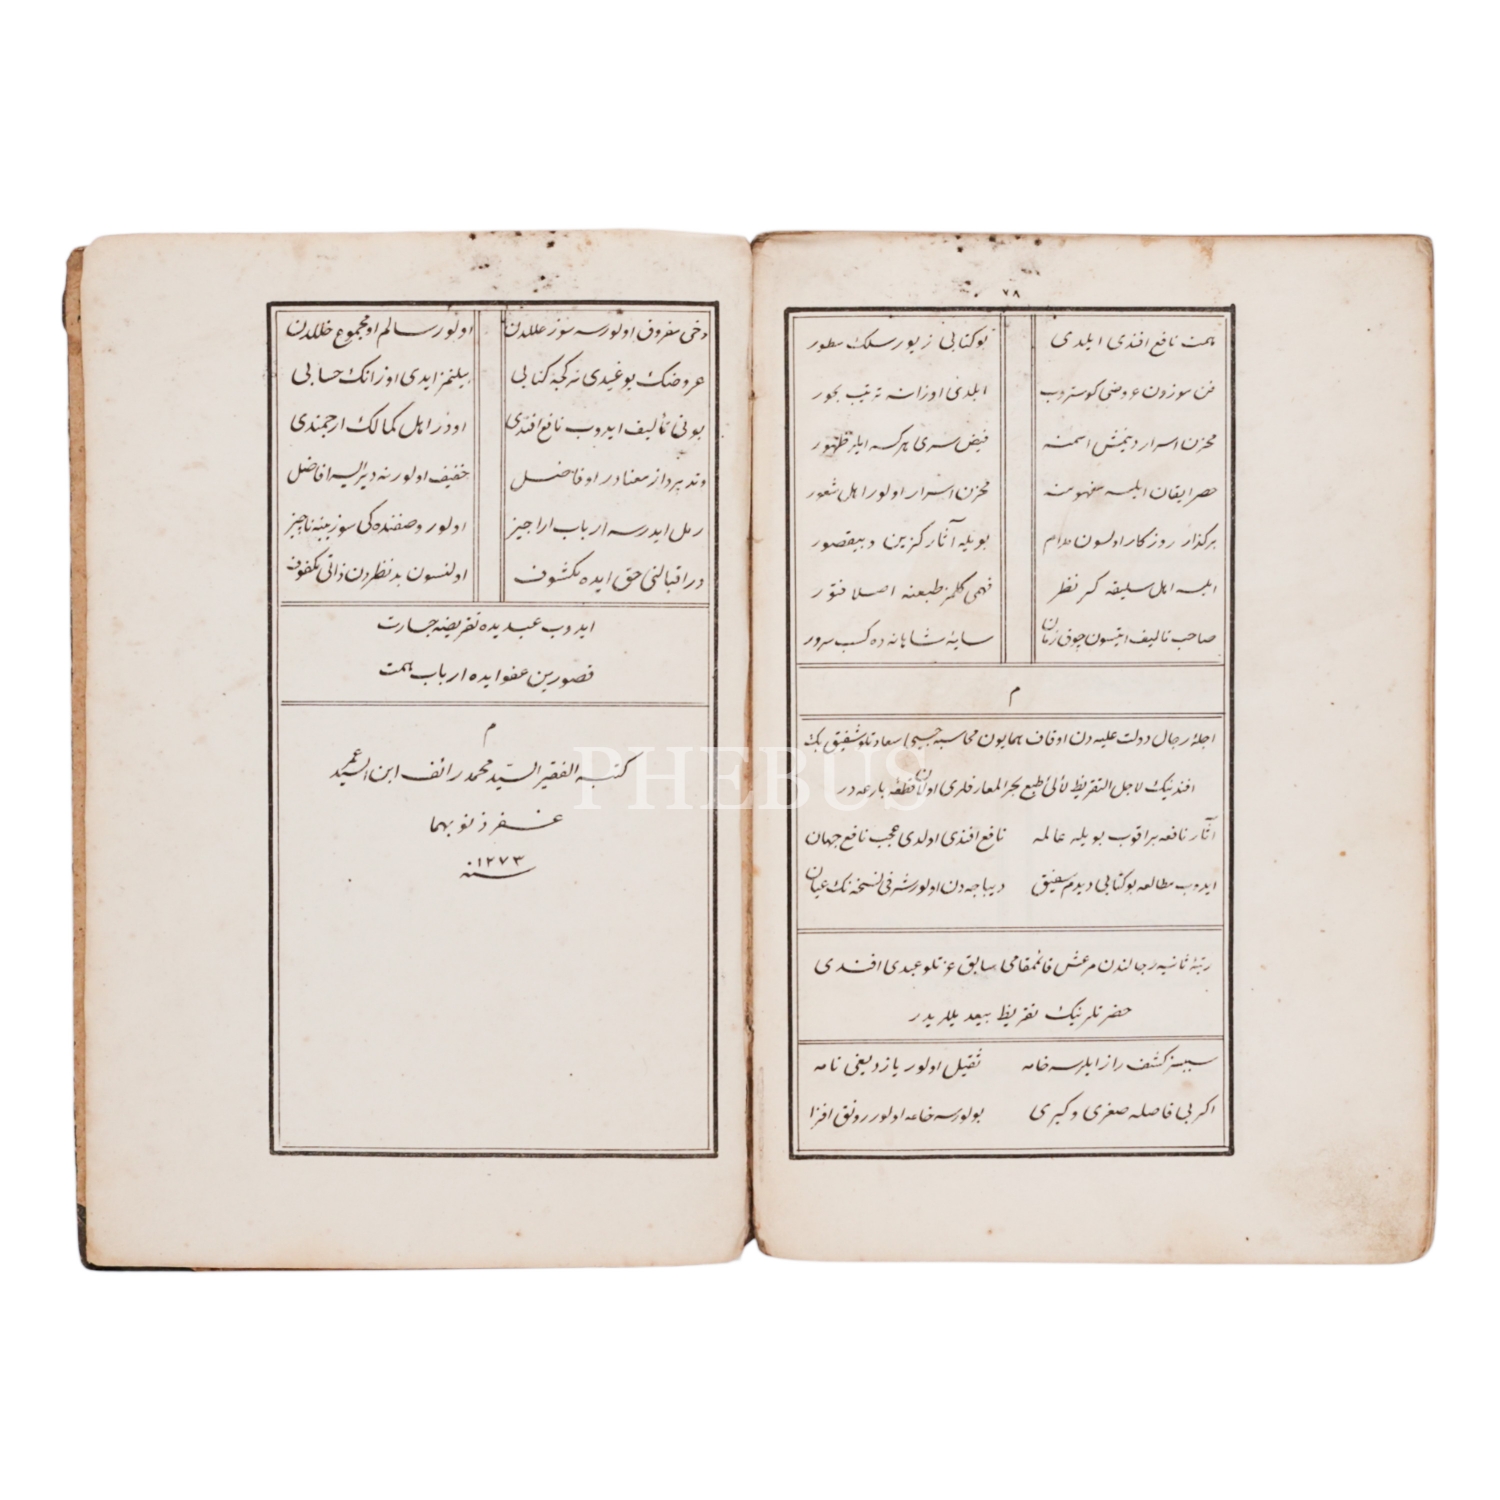 ٧٨
همت نافع افندی ایلدی بوکتابی زیور سلک سطور
فن سوزدن عروضی کوستروب ایلدی اوزانه ترتیب بحور
مخزن اسرار دیمش اسمنه فیض سری هرکسه ایلر ظهور
حصر ایقان ایلسه مفهومنه مخزن اسرار اولور اهل شعور
برکذار روزکار اولسون مدام بویله آثار کزین و بیقصور
ایلسه اهل سلیقه کر نظر فهمی کلمز طبعنه اصلا فتور
صاحب تالیف ایتسون چوق زمان سایۀ شاهانه ده کسب سرور
م
اجلۀ رجال دولت علیه دن اوقاف همایون محاسبه جیسی سعادتلو شفیق بک
افندینک لاجل التقریظ لآلئ طبع بحر المعارفلری اولان قطعۀ بارعه در
آثار نافعه براقوب بویله عالمه نافع افندی اولدی عجب نافع جهان
ایدوب مطالعه بوکتابی دیدم شفیق دیباجه دن اولور شرفی نسخه نک عیان
رتبۀ ثانیه رجالندن مرعش قائمقامی سابق عزتلو عبدی افندی
حضرتلرینک تقریظ بیعدیللریدر
سبسز کشف راز ایلرسه خامه ثقیل اولور یازدیغی نامه
اکر بی فاصله صغری وکبری بولورسه خاعه اولور رونق افزا
دخی مفروق اولورسه سوز عللدن اولور سالم او مجموعه خللدن
عروضک بوغیدی نرکجه کتابی بیلنمز ایدی اوزانک حسابی
بونی تألیف ایدوب نافع افندی اودر اهل کمالک ارجمندی
وتد پرداز معنادر اوفاضل خفیف اولورنه دیرلسه افاضل
رمل ایدرسه ارباب اراجیز اولور وصفنده کی سوز ینه ناچیز
در اقبالنی حق ایده مکشوف اولنسون بدنظردن ذاتی مکفوف
ایدوب عبدیده تقریضه جسارت
قصورین عفو ایده ارباب همت
م
کتبه الفقیر السید محمد رائف ابن السید عمر
غفر ذنوبهما
سنه ١٢٧٣
PHEBUS